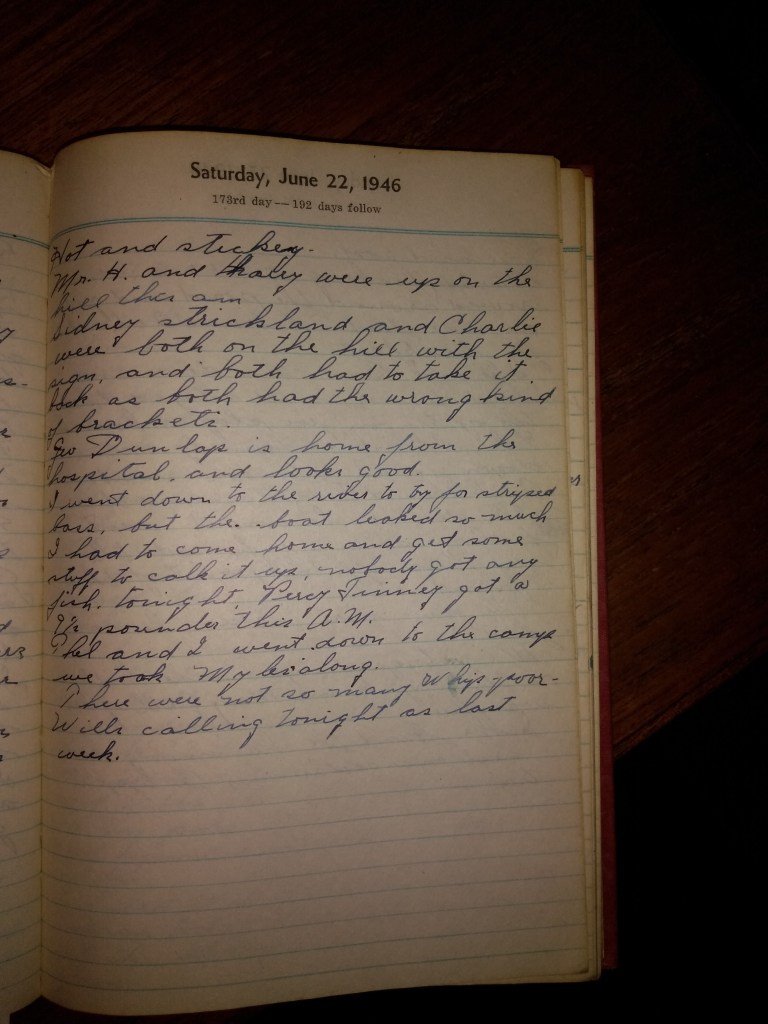 Saturday, June 22, 1946
173rd day — 192 days follow
Hot and stickey.
Mr. H. and were up on the
hill this am
Sidney Strickland and Charlie
were both on the hill with the
sign, and both had to take it
back as both had the wrong kind
of brackets.
Geo Dunlap is home from the
hospital, and looks good.
I went down to the river to try for striped
bass, but the boat leaked so much
I had to come home and get some
stuff to calk it up, nobody got any
fish. tonight, Percy Tinney got a
pounder this A.M.
Phil and I went down to the camp
we took along.
There were not so many Whip-poor-
Wills calling tonight as last
week.